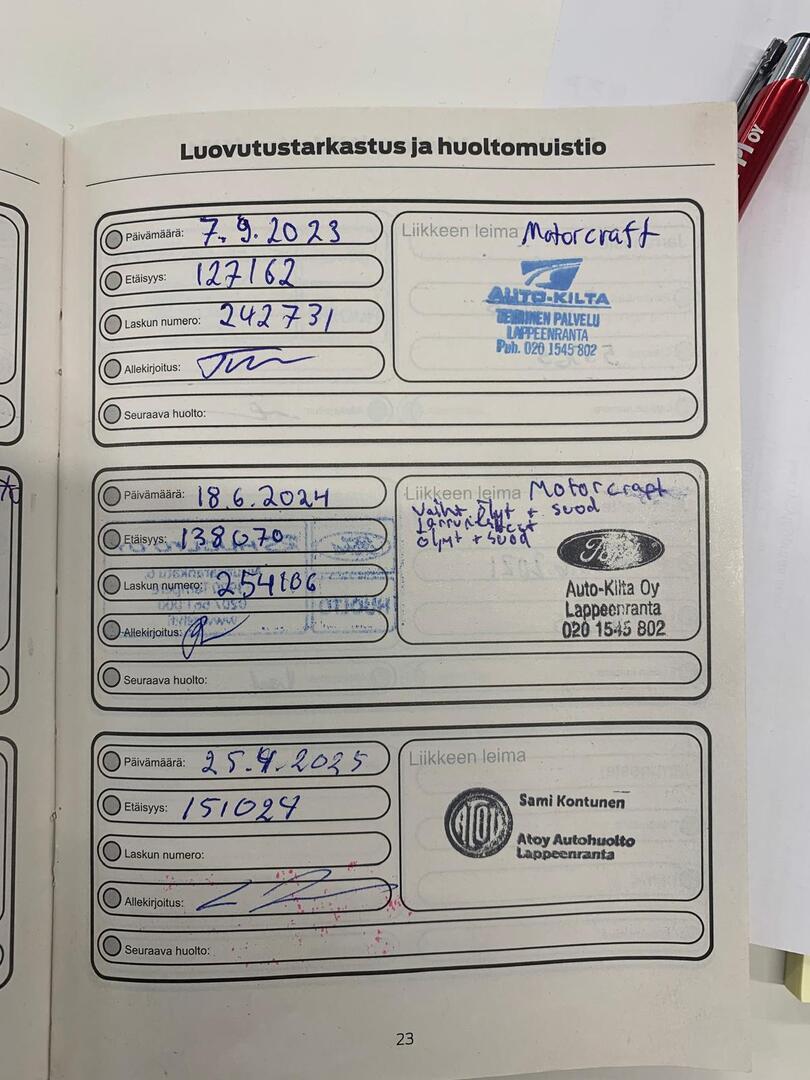 Luovutustarkastus ja huoltomuistio
Päivämäärä: 7.9.2023
Etäisyys: 127162
Laskun numero: 242731
Allekirjoitus:
Seuraava huolto:
Liikkeen leima Motorcraft
AUTO-KILTA
PALVELU
LAPPEENRANTA
Puh. 020 1545 802
Päivämäärä: 18.6.2024
Etäisyys: 138070
Laskun numero: 254186
Allekirjoitus:
Seuraava huolto:
Liikkeen leima Motorcraft
Vaiht. öljyt + suod
öljyt + suod
Ford
Auto-Kilta Oy
Lappeenranta
020 1545 802
Päivämäärä: 25.4.2025
Etäisyys: 151024
Laskun numero:
Allekirjoitus:
Seuraava huolto:
Liikkeen leima
ATOY
Sami Kontunen
Atoy Autohuolto
Lappeenranta
23
OY